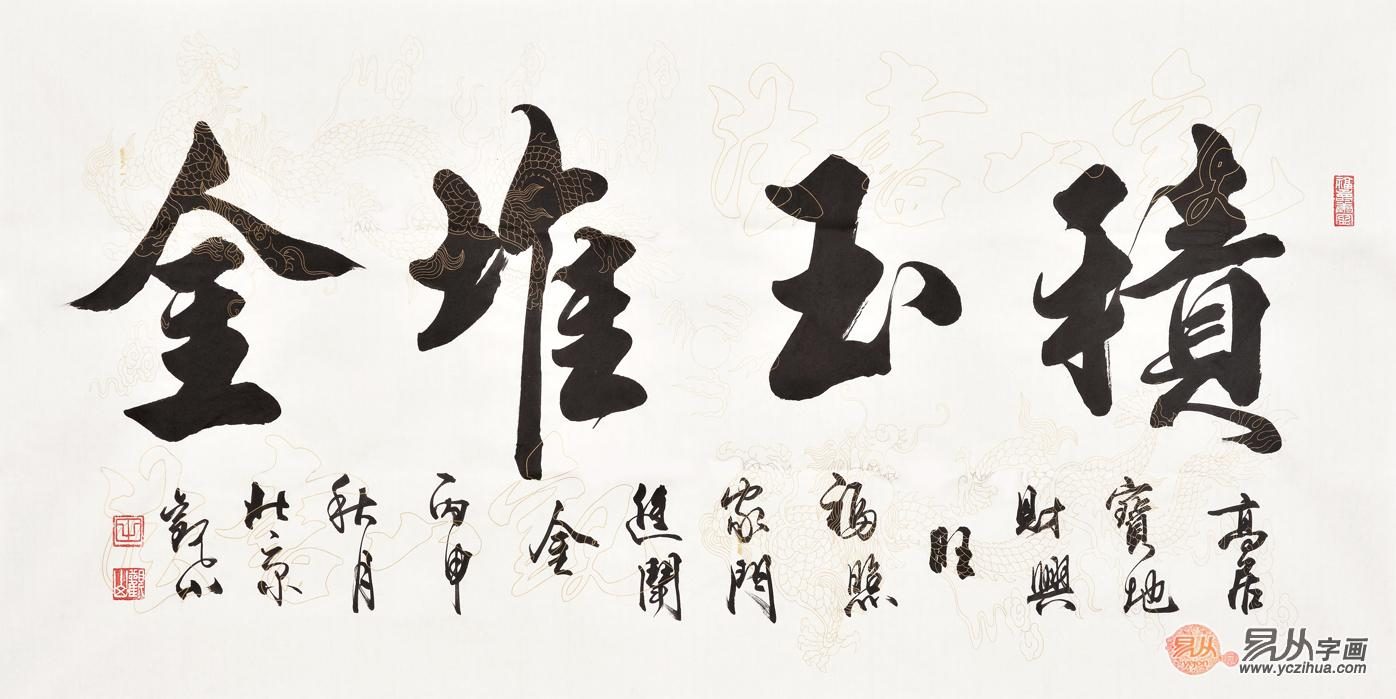 積玉堆金
高居
寶地
財興
旺
福照
家門
進鬪
金
丙申
秋月
北京
觀山
觀山
易从
易从字画
www.yczihua.com